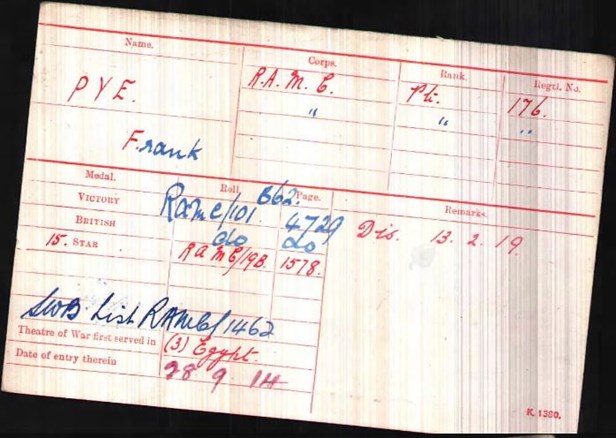 Name. Corps. Rank. Regtl. No.
PYE. R.A.M.C. Pte. 176.
" " "
Frank
Medal. Roll. Page. Remarks.
B62.
VICTORY RAMC/101 4729 Dis. 13.2.19
BRITISH do do
15. STAR RAMC/19B. 1578.
SWB List RAMC/1462
Theatre of War first served in (3) Egypt.
Date of entry therein 28 9 14
K. 1380.